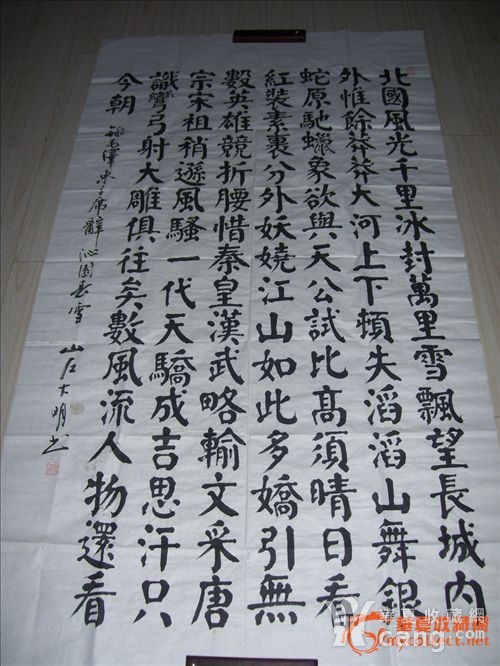 北國風光千里冰封萬里雪飄望長城内
外惟餘莽莽大河上下頓失滔滔山舞銀
蛇原馳蠟象欲與天公試比高須晴日看
紅装素裹分外妖嬈江山如此多嬌引無
數英雄競折腰惜秦皇漢武略輸文采唐
宗宋祖稍遜風騷一代天驕成吉思汗只
識彎弓射大雕俱往矣數風流人物還看
今朝 毛澤東主席辭沁園春雪
山左大明书
收藏网
cang.com
華夏收藏網
mycollect.net